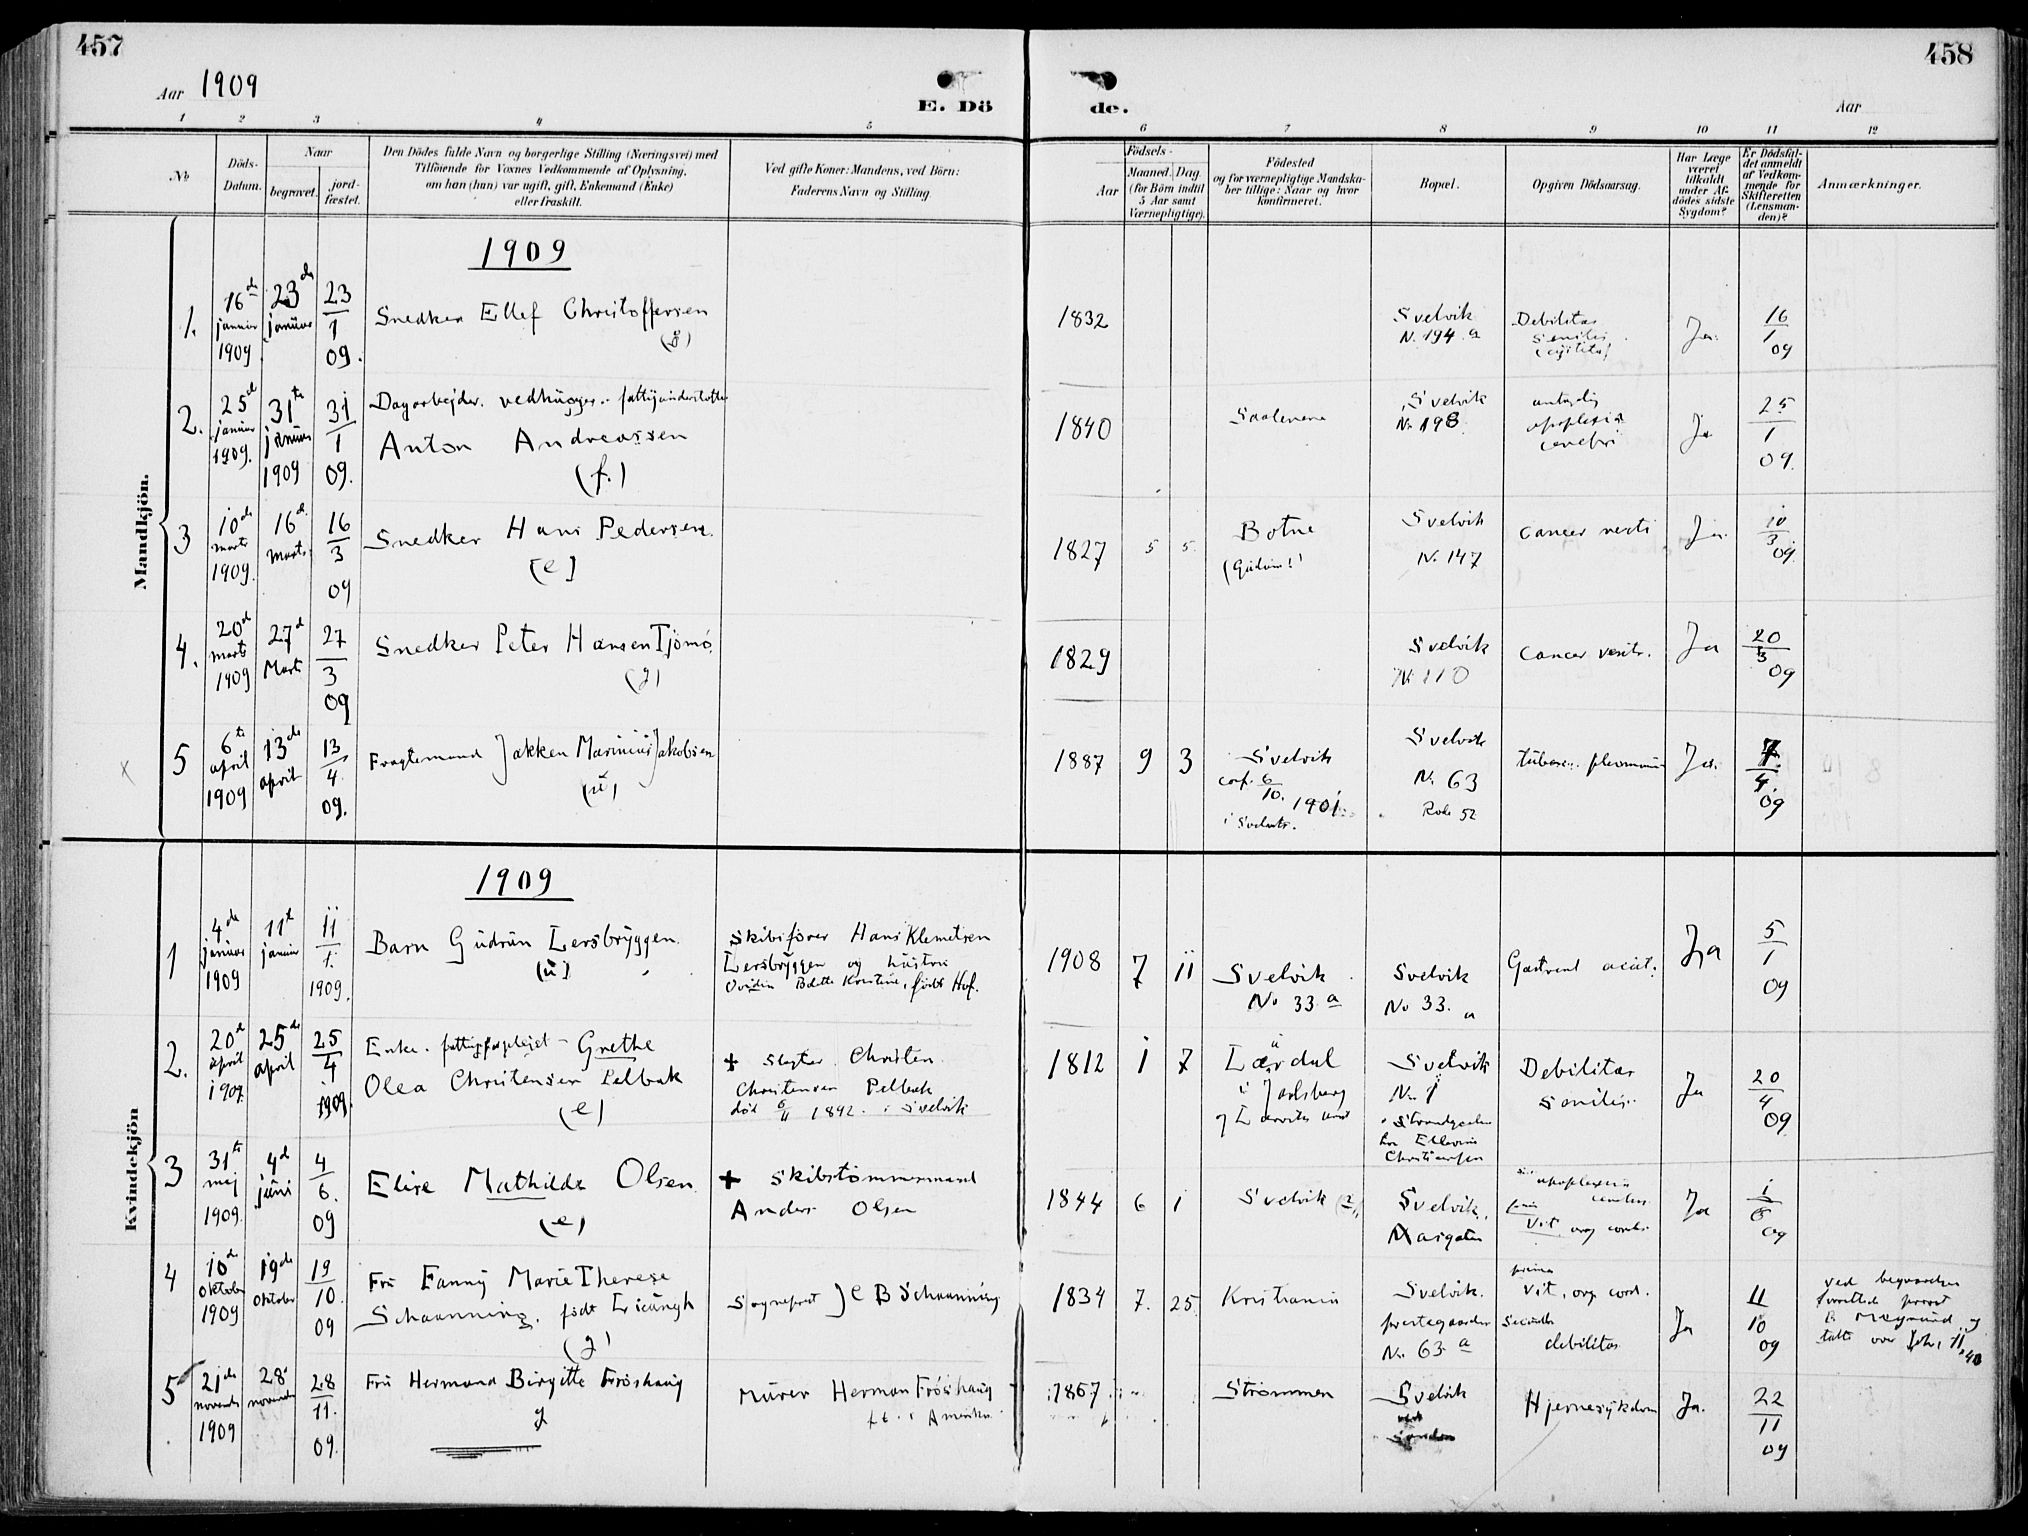 457
Aar 1909
E. Dö
de.
458
Aar
1 2 3 4 5 6 7 8 9 10 11 12
No
Döds-
Datum.
Naar
begravet.
jord-
fæstet.
Den Dödes fulde Navn og borgerlige Stilling (Næringsvei) med
Tilföiende for Voxnes Vedkommende af Oplysning,
om han (hun) var ugift, gift, Enkemand (Enke)
eller fraskilt.
Ved gifte Koner: Mandens, ved Börn:
Faderens Navn og Stilling.
Födsels-
Aar
Maaned. Dag.
(for Börn indtil
5 Aar samt
Værnepligtige).
Födested
og for værnepligtige Mandska-
ber tillige: Naar og hvor
konfirmeret.
Bopæl.
Opgiven Dödsaarsag.
Har Læge
været
tilkaldt
under Af-
dödes sidste
Sygdom?
Er Dödsfal-
det anmeldt
af Vedkom-
mende for
Skifteretten
(Lensman-
den)?
Anmærkninger.
Mandkjön.
1909
1.
16de
januar
1909
23de
januar
23
1
09.
Snedker Ellef Christoffersen
(g)
1832
Svelvik
N. 194 a
Debilitas
senilis
Ja.
16
1
09
2.
25de
januar
1909.
31te
januar
1909
31
1
09.
Dagarbejder. vedhugger.
Anton Andreassen
(f.)
1840
Svelvik
No 198.
apoplexia
cerebri
Ja
25
1
09.
3
10de
marts
1909.
16de
marts
16
3
09
Snedker Hans Pedersen.
[e]
1827 5 5.
Botne
Svelvik
N. 147
cancer
Ja.
10
3
09.
4.
20de
marts
1909
27de
Marts
27
3
09
Snedker Peter Hansen Tjömö.
(g)
1829
Svelvik
N. 110
Cancer
Ja
20
3
09
5
6te
april
1909
13de
april
13
4.
09.
Fragtemand Jakken Marinius Jakobsen
(u)
1887 9 3
Svelvik
conf. 6
10. 1901
i Svelvik.
Svelvik
N. 63
Rode 52
Ja.
7.
4.
09
Kvindekjön
1909
1
4de
januar
1909
11te
januar
11
1.
1909.
Barn Gudrun Lersbryggen.
(u)
Skibsförer Hans Klemetsen
Lersbryggen og hustru
Bolette Kristine, födt Hof.
1908 7 11
Svelvik
No 33. a
Svelvik
No 33. a
Ja
5
1
09
2.
20de
april
1909.
25de
april
25
4
1909.
Enke. fattigforplejet - Grethe
Olea Christensen Pelbak
(e)
+ Slagter Christen
Christensen Pelbak
död 6/11 1892. i Svelvik
1812 1 7
Lærdal
i Jarlsberg
og Larviks amt
Svelvik
N. 1
Strandgaden
hos Ellevine
Christiansen
Debilitas
senilis.
Ja
20
4
09
3
31te
maj
1909.
4de
juni
4
6.
09
Elise Mathilde Olsen.
(e)
+ Skibstömmermand
Anders Olsen
1844 6 1
Svelvik
Svelvik,
apoplexia
cerebri
Vit. org cordis
Ja
1
6
09
4
10de
Oktober
1909
19de
Oktober
19
10.
09
Fru Fanny Marie Therese
Schaanning, födt
(g)
Sognepræst J C B Schaanning
1834 7. 25.
Kristiania
Svelvik.
præstegaarden
N. 63 a
prima
Vit. org cord.
debilitas
Ja
11
10
09
ved begravelsen
forrettede provst
og
talte over Joh. 11,40
5
21de
november
1909
28de
november
28
11.
09.
Fru Hermana Birgitte Fröshaug
g
Murer Herman Fröshaug
f.t. i Amerika.
1867
Strömmen
Svelvik
ved
Sanden
Hjernesykdom
Ja.
22
11
09